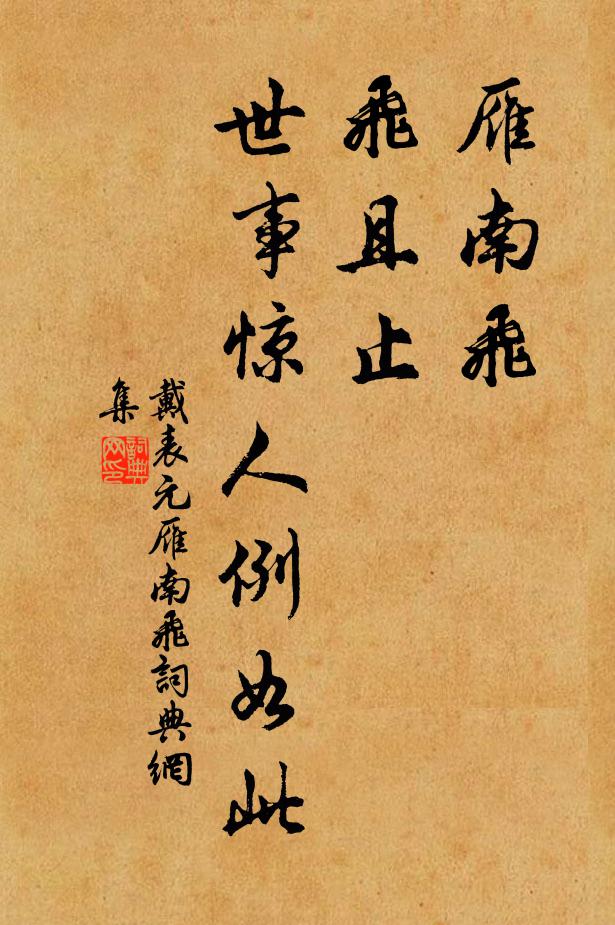 雁南飛
飛且止
世事惊人例如此
戴表元雁南飛詞典網
集
詞典
网印